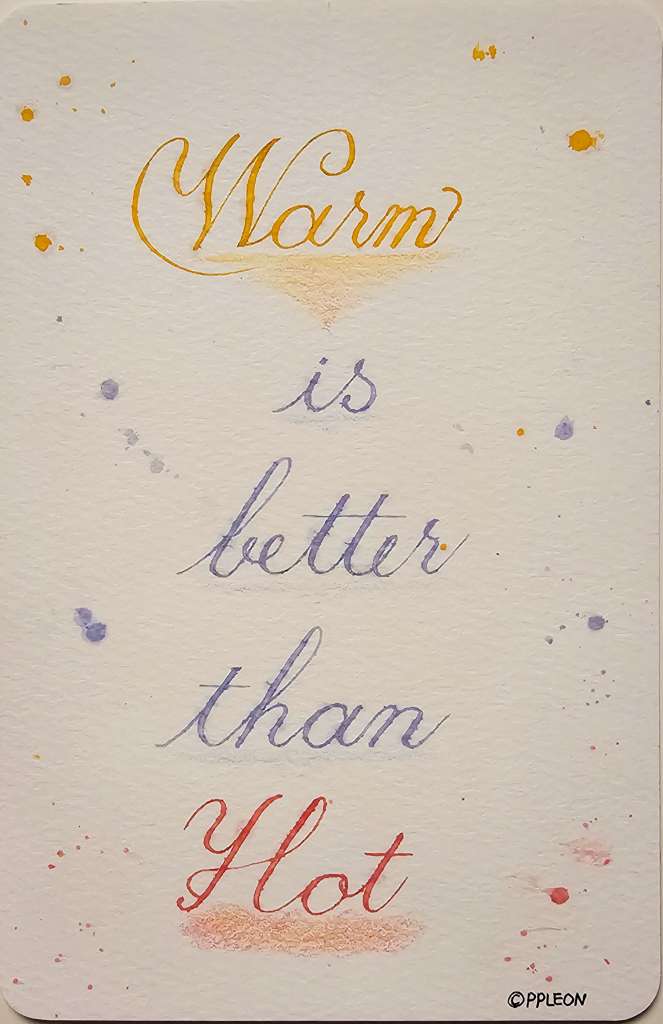 Warm
is
better
than
Hot
©PPLEON